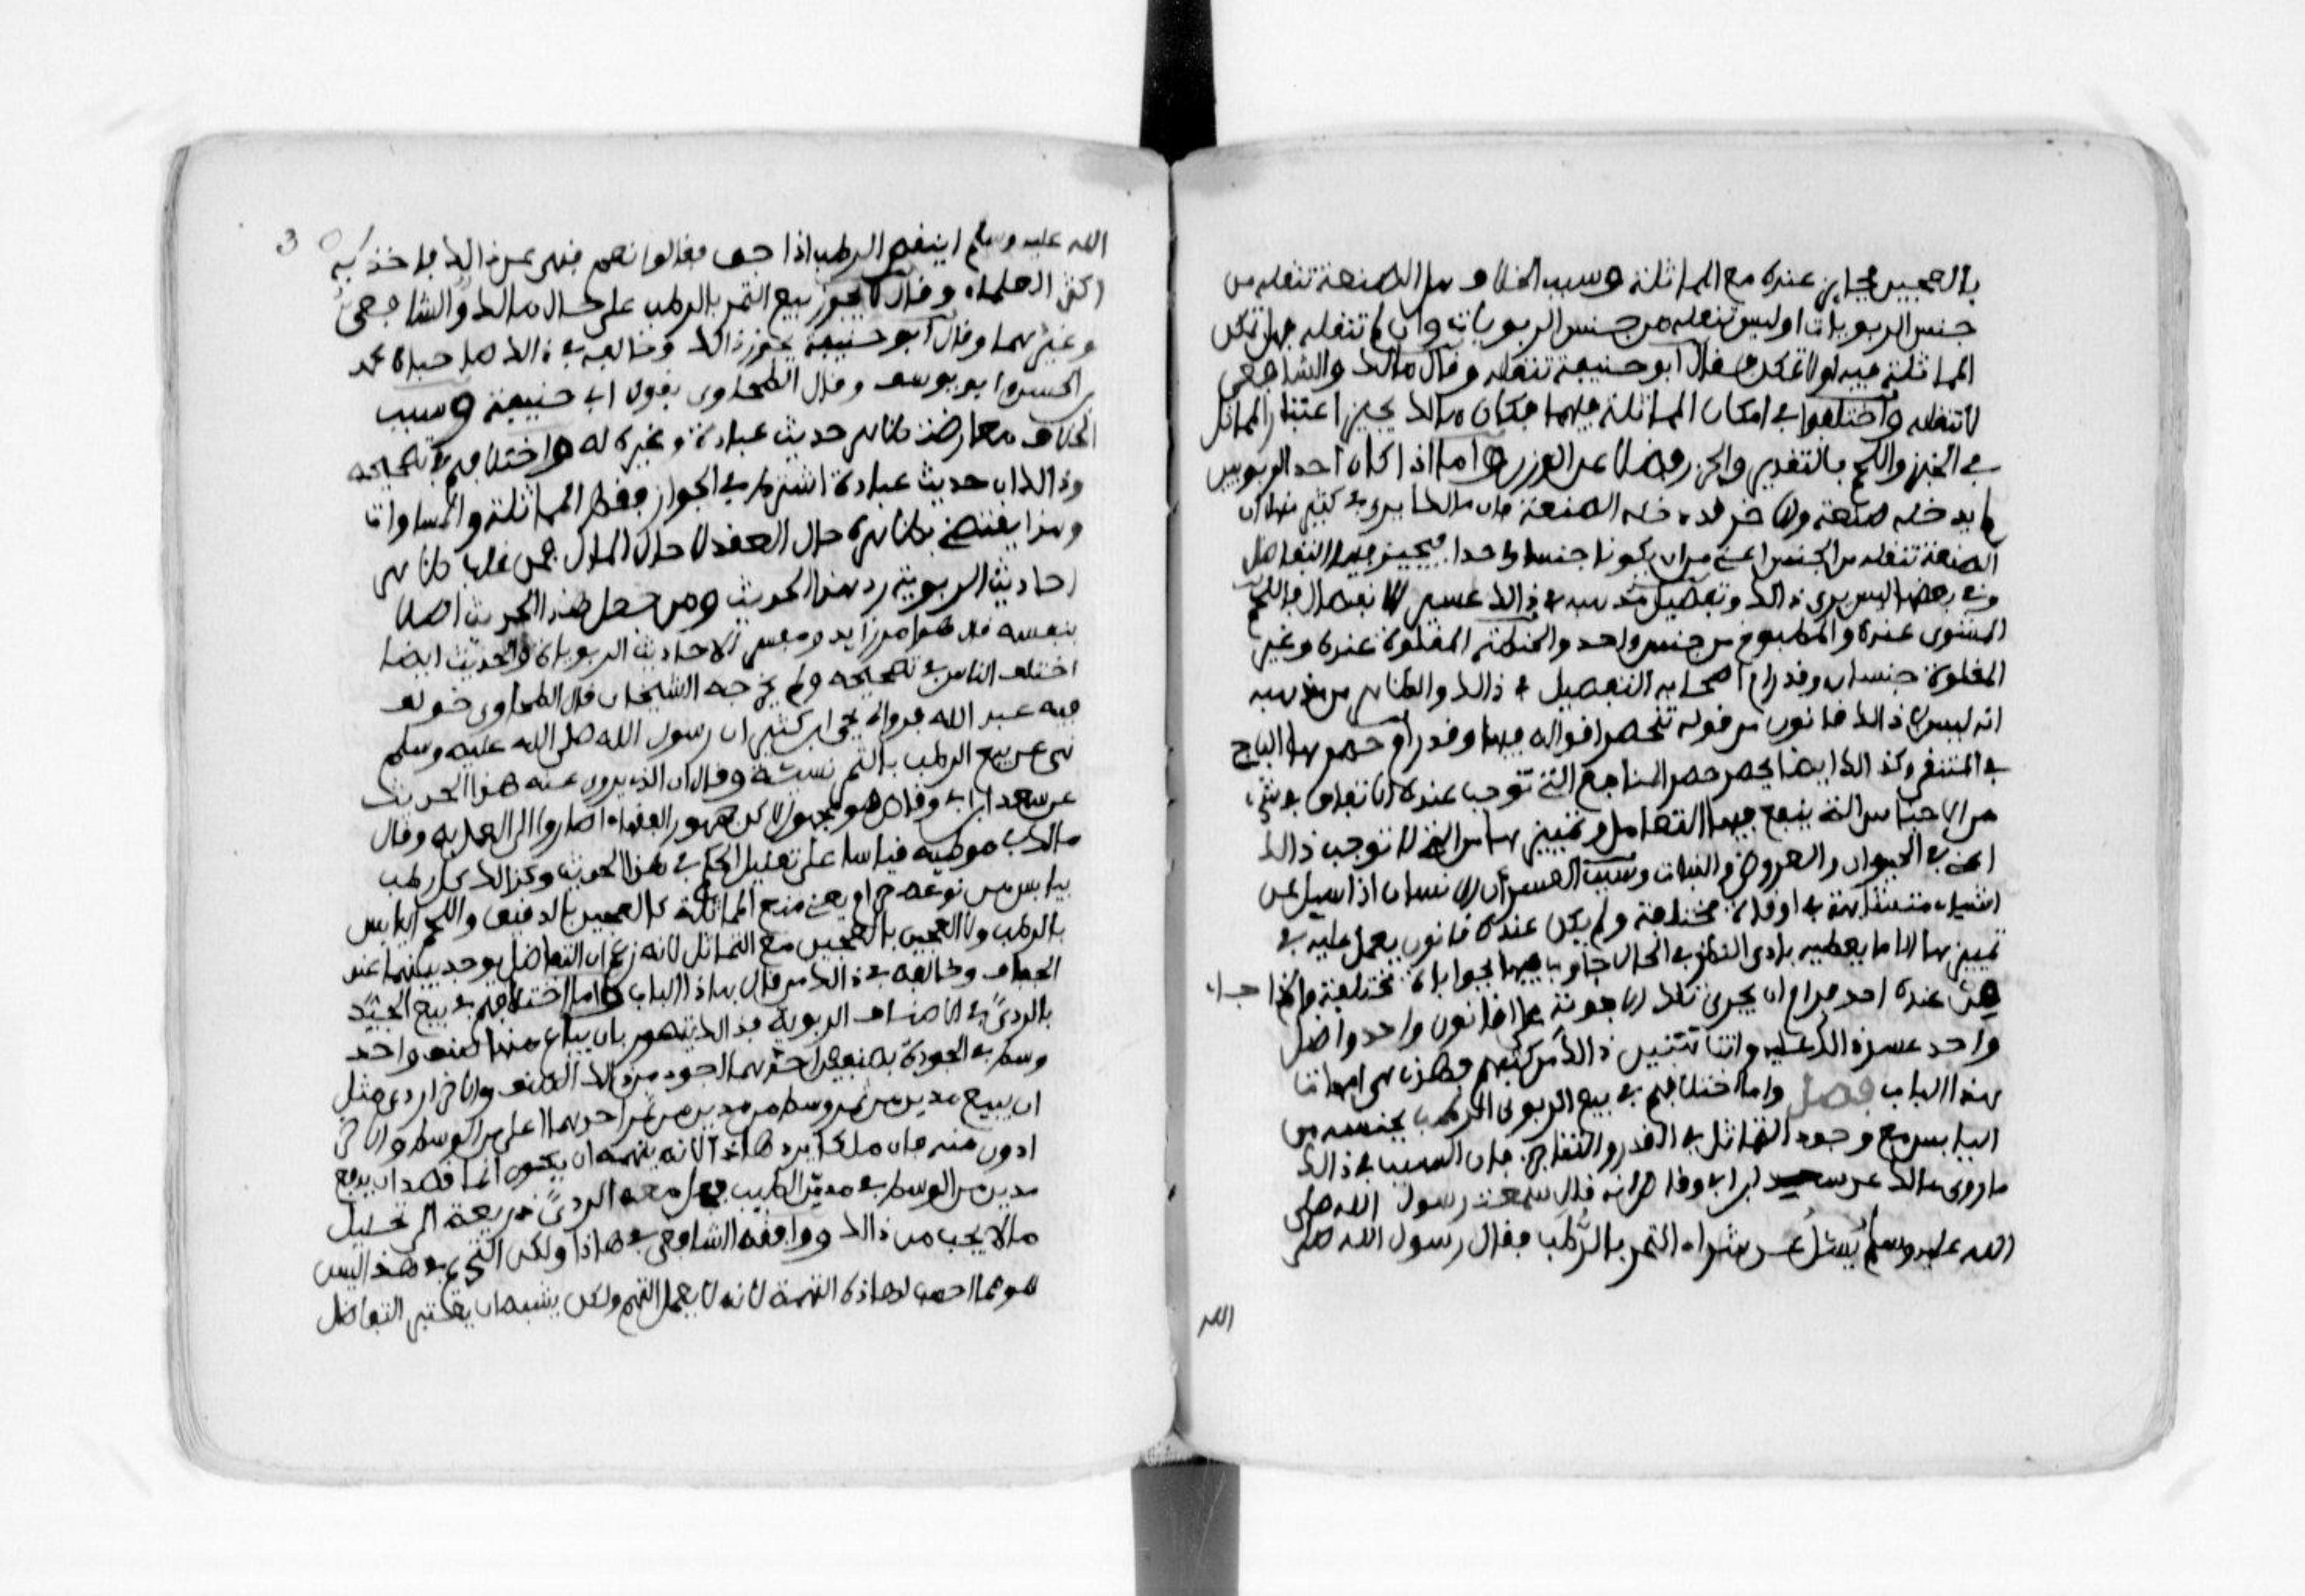 بالعجين فجايز عنده مع المماثلة وسبب الخلاف هل الصنعة تنقله من
جنس الربويات او ليس تنقله من جنس الربويات وان لم تنقله فهل تمكن
المماثلة فيه او لا تمكن فقال ابو حنيفة تنقله وقال مالك والشافعي
لا تنقله واختلفوا في امكان المماثلة فيهما فكان مالك يجيز اعتبار المماثل
في الخبز واللحم بالتقدير والحزر فضلا عن الوزن واما اذا كان احد الربويين
لم يدخله صنعة والاخر قد دخله الصنعة فان مالكا يرى في كثير منها ان
الصنعة تنقله من الجنس اعني من ان يكونا جنسا واحدا فيجيز فيها التفاضل
وفي بعضها ليس يرى ذالك وتفصيل مذهبه في ذالك عسير الانفصال فاللحم
المشوى عنده والمطبوخ من جنس واحد والحنطة المقلوة عنده وغير
المقلوة جنسان وقد رام اصحابه التفصيل في ذالك والظاهر من مذهبه
انه ليس في ذالك قانون من قوله تنحصر اقواله فيها وقد رام حصرها الباجي
في المنتقى وكذالك ايضا يعسر حصر المنافع التي توجب عنده الاتفاق في شيء
من الاجناس التي يقع فيها التعامل وتمييزها من التي لا توجب ذالك
اعني في الحيوان والعروض والنبات وسبب العسر ان الانسان اذا سيل عن
اشياء متشابهة في اوقات مختلفة ولم يكن عنده قانون يعمل عليه في
تمييزها الا ما يعطيه بادى النظر في الحال جاوب فيها بجوابات مختلفة فاذا جاء
من عنده احد فرام ان يجرى تلك الاجوبة على قانون واحد واصل
واحد عسر ذالك عليه وانت تتبين ذالك من كتبهم فهذه هي امهات
هذا الباب فصل واما اختلافهم في بيع الربوى الرطب بجنسه من
اليابس مع وجود التماثل في القدر والتناجز فان السبب في ذالك
ما روى مالك عن سعيد ابن ابي وقاص انه قال سمعت رسول الله صلى
الله عليه وسلم يُسئل عن شراء التمر بالرُّطب فقال رسول الله صلى
الله
الله عليه وسلم اينقص الرطب اذا جف فقالوا نعم فنهى عن ذالك فاخذ به
اكثر العلماء وقال لا يجوز بيع التمر بالرطب على حال مالك والشافعي
وغيرهما وقال ابو حنيفة يجوز ذالك وخالفه في ذالك صاحباه محمد
بن الحسن وابو يوسف وقال الطحاوى بقول ابي حنيفة وسبب
الخلاف معارضة ظاهر حديث عبادة وغيره له واختلافهم في تصحيحه
وذالك ان حديث عبادة اشترط في الجواز فقط المماثلة والمساوات
وهذا يقتضي بظاهره حال العقد لا حال المال فمن غلب ظاهر
احاديث الربوية رد هذا الحديث ومن جعل هذا الحديث اصلا
بنفسه قال هو امر زايد ومفسر لاحاديث الربويات والحديث ايضا
اختلف الناس في تصحيحه ولم يخرجه الشيخان قال الطحاوى خولف
فيه عبد الله فرواه يحيى ابن كثير ان رسول الله صلى الله عليه وسلم
نهى عن بيع الرطب بالتمر نسيئة وقال ان الذي يروى عنه هذا الحديث
عن سعد ابن ابي وقاص هو مجهول لاكن جمهور الفقهاء صاروا الى العمل به وقال
مالك في موطيه قياسا على تعليل الحكم في هذا الحديث وكذالك كل رطب
بيابس من نوعه حرام يعني منع المماثلة كالعجين بالدقيق واللحم اليابس
بالرطب ولا العجين بالعجين مع التماثل لانه زعم ان التفاضل يوجد بينهما عند
الجفاف وخالفه في ذالك من قال بهاذا الباب واما اختلافهم في بيع الجيّد
بالردىّ في الاصناف الربوية فذالك يتصور بان يباع منها صنف واحد
وسط في الجودة بصنفين احدهما اجود من ذالك الصنف والاخر اردى مثل
ان يبيع مدين من تمر وسط من مدين من تمر احدهما اعلى من الوسط والاخر
ادون منه فان مالكا يرد هاذا لانه يتهمه ان يكون انما قصد ان يدفع
مدين من الوسط في مد من الطيب فجعل معه الردىّ ذريعة الى تحليل
ما لا يجب من ذالك ووافقه الشافعي في هاذا ولكن التحريم عنده ليس
هو فيما احسب لهاذه التهمة لانه لا يعمل التهم ولكن يشبه ان يعتبر التفاضل